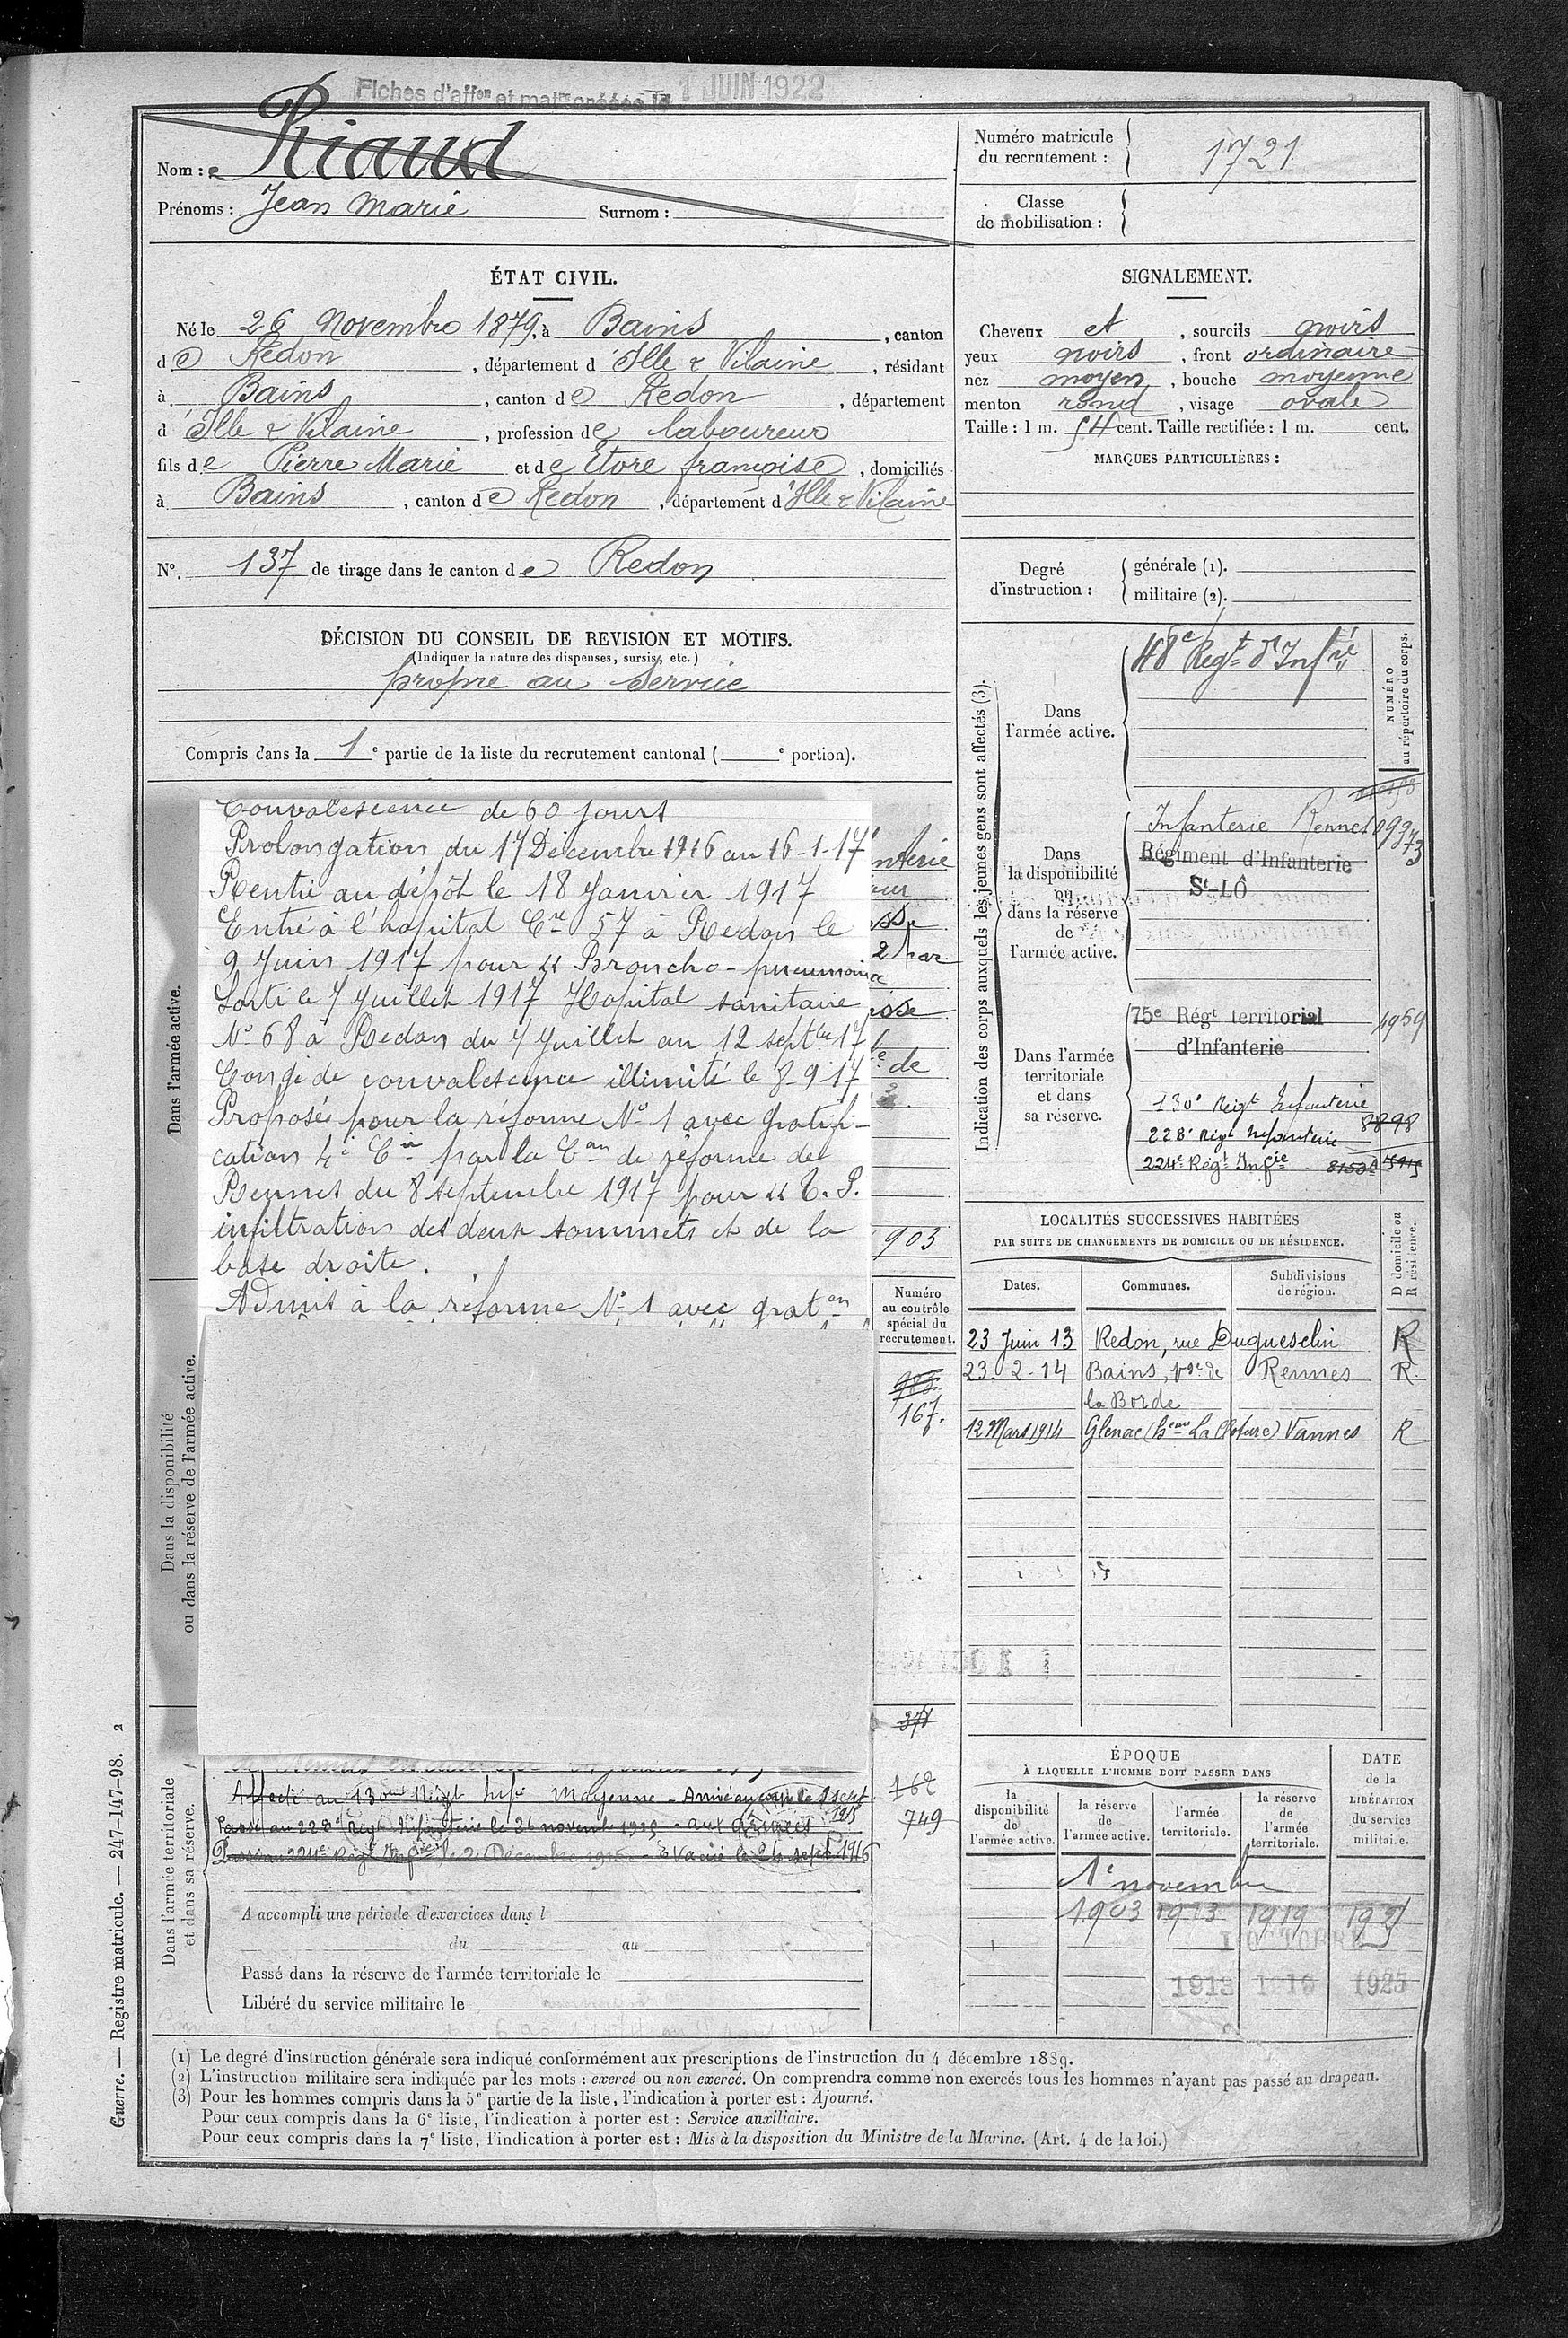 Fiches d'affon et matre créées le 1 JUIN 1922
Nom : Riaud
Prénoms : Jean Marie Surnom :
Numéro matricule du recrutement : 1721
Classe de mobilisation :
ÉTAT CIVIL.
Né le 26 Novembre 1879, à Bains, canton
de Redon, département d'Ille & Vilaine, résidant
à Bains, canton de Redon, département
d'Ille & Vilaine, profession de laboureur
fils de Pierre Marie et de Etore françoise, domiciliés
à Bains, canton de Redon, département d'Ille & Vilaine
N°. 137 de tirage dans le canton de Redon
SIGNALEMENT.
Cheveux et, sourcils noirs
yeux noirs, front ordinaire
nez moyen, bouche moyenne
menton rond, visage ovale
Taille : 1 m. 54 cent. Taille rectifiée : 1 m. cent.
MARQUES PARTICULIÈRES :
Degré d'instruction :
générale (1).
militaire (2).
DÉCISION DU CONSEIL DE REVISION ET MOTIFS.
(Indiquer la nature des dispenses, sursis, etc.)
propre au service
Compris dans la 1e partie de la liste du recrutement cantonal ( e portion).
Dans l'armée active.
Convalescence de 60 jours
Prolongation du 17 Décembre 1916 au 16-1-17
Rentré au dépôt le 18 Janvier 1917
Entré à l'hopital Cre 57 à Redon le
9 Juin 1917 pour "Broncho-pneumonie
Sorti le 7 Juillet 1917 Hopital sanitaire
N° 68 à Redon du 7 Juillet au 12 septbre 17
Congé de convalescence illimité le 8-9-17
Proposé pour la réforme N° 1 avec gratifi-
cation 4e Cie par la Con de réforme de
Rennes du 8 Septembre 1917 pour "T. P.
infiltration des deux sommets et de la
base droite.
Admis à la réforme N° 1 avec graton
nterie
2 par
de
903
Dans la disponibilité ou dans la réserve de l'armée active.
Numéro au contrôle spécial du recrutement.
167.
Dans l'armée territoriale et dans sa réserve.
Affecté au 130me Régt Infie Mayenne - Arrivé au corps le 9 sept 1915
Passé au 228e Régt Infanterie le 26 novembre 1915 - aux Armées
Passé au 224e Régt Infie le 2 Décembre 1915 - Evacué le 24 sept 1916
378
762
749
A accompli une période d'exercices dans l
du au
Passé dans la réserve de l'armée territoriale le
Libéré du service militaire le
Indication des corps auxquels les jeunes gens sont affectés (3).
NUMÉRO au répertoire du corps.
Dans l'armée active.
48e Regt d'Infrie
Dans la disponibilité ou dans la réserve de l'armée active.
Infanterie Rennes 09973
Régiment d'Infanterie
St-LÔ
Dans l'armée territoriale et dans sa réserve.
75e Régt territorial 4959
d'Infanterie
130e Régt Infanterie
228e Régt Infanterie 8898
224e Régt Infie
LOCALITÉS SUCCESSIVES HABITÉES
PAR SUITE DE CHANGEMENTS DE DOMICILE OU DE RÉSIDENCE.
D domicile ou R résidence.
Dates. Communes. Subdivisions de région.
23 Juin 13 Redon, rue Duguesclin R
23-2-14 Bains, vge de la Borde Rennes R.
12 Mars 1914 Glenac (hau La Cloture) Vannes R
ÉPOQUE
À LAQUELLE L'HOMME DOIT PASSER DANS
la disponibilité de l'armée active.
la réserve de l'armée active.
l'armée territoriale.
la réserve de l'armée territoriale.
DATE de la LIBÉRATION du service militaire.
1e novembre
1903 1913 1919 192
1 OCTOBRE
1913 1919 1925
(1) Le degré d'instruction générale sera indiqué conformément aux prescriptions de l'instruction du 4 décembre 1889.
(2) L'instruction militaire sera indiquée par les mots : exercé ou non exercé. On comprendra comme non exercés tous les hommes n'ayant pas passé au drapeau.
(3) Pour les hommes compris dans la 5e partie de la liste, l'indication à porter est : Ajourné.
Pour ceux compris dans la 6e liste, l'indication à porter est : Service auxiliaire.
Pour ceux compris dans la 7e liste, l'indication à porter est : Mis à la disposition du Ministre de la Marine. (Art. 4 de la loi.)
Guerre. — Registre matricule. — 247-147-98. 2